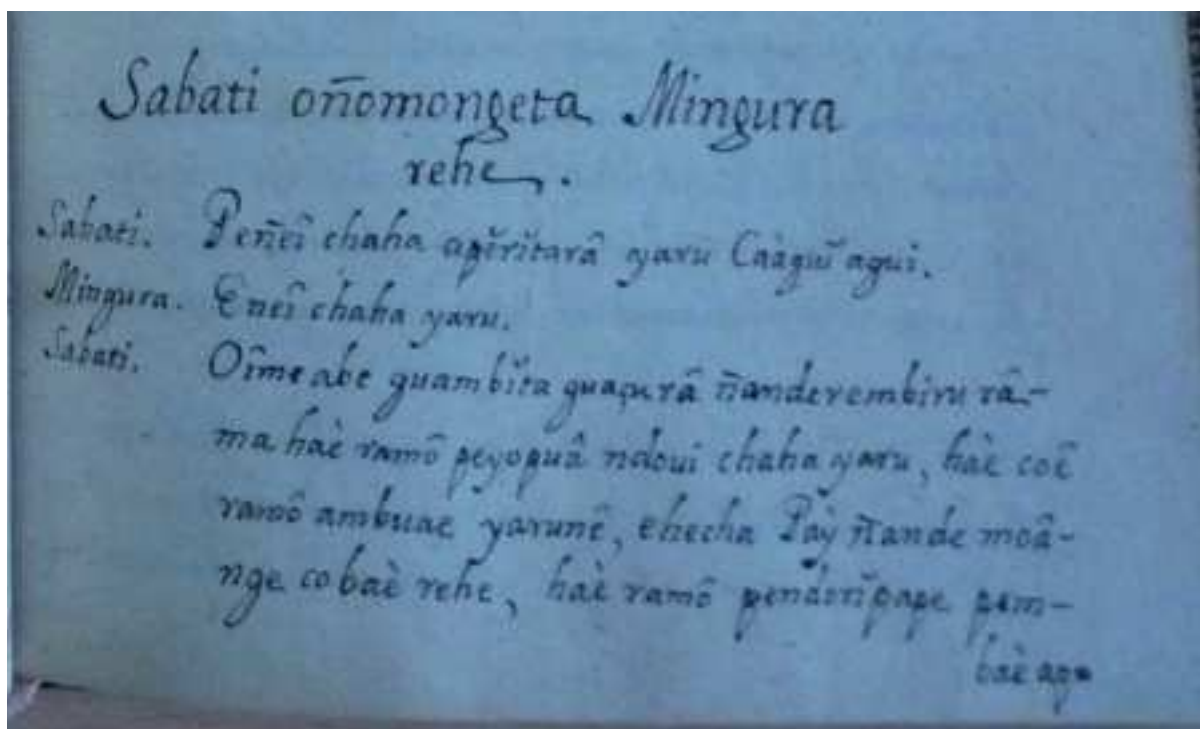 Sabati oñomongeta Mingura
rehe.
Sabati. Peñeî chaha apĭrĭtarâ yaru Caàguĭ agui.
Mingura. Eneî chaha yaru.
Sabati. Oîme abe guambĭta guaçurâ ñanderembiru râ-
ma haè ramô peyopuâ ndoui chaha yaru, haè coê
ramô ambuae yarunê, ehecha Paỳ ñande moâ-
nge co baè rehe, haè ramô pem-
baè